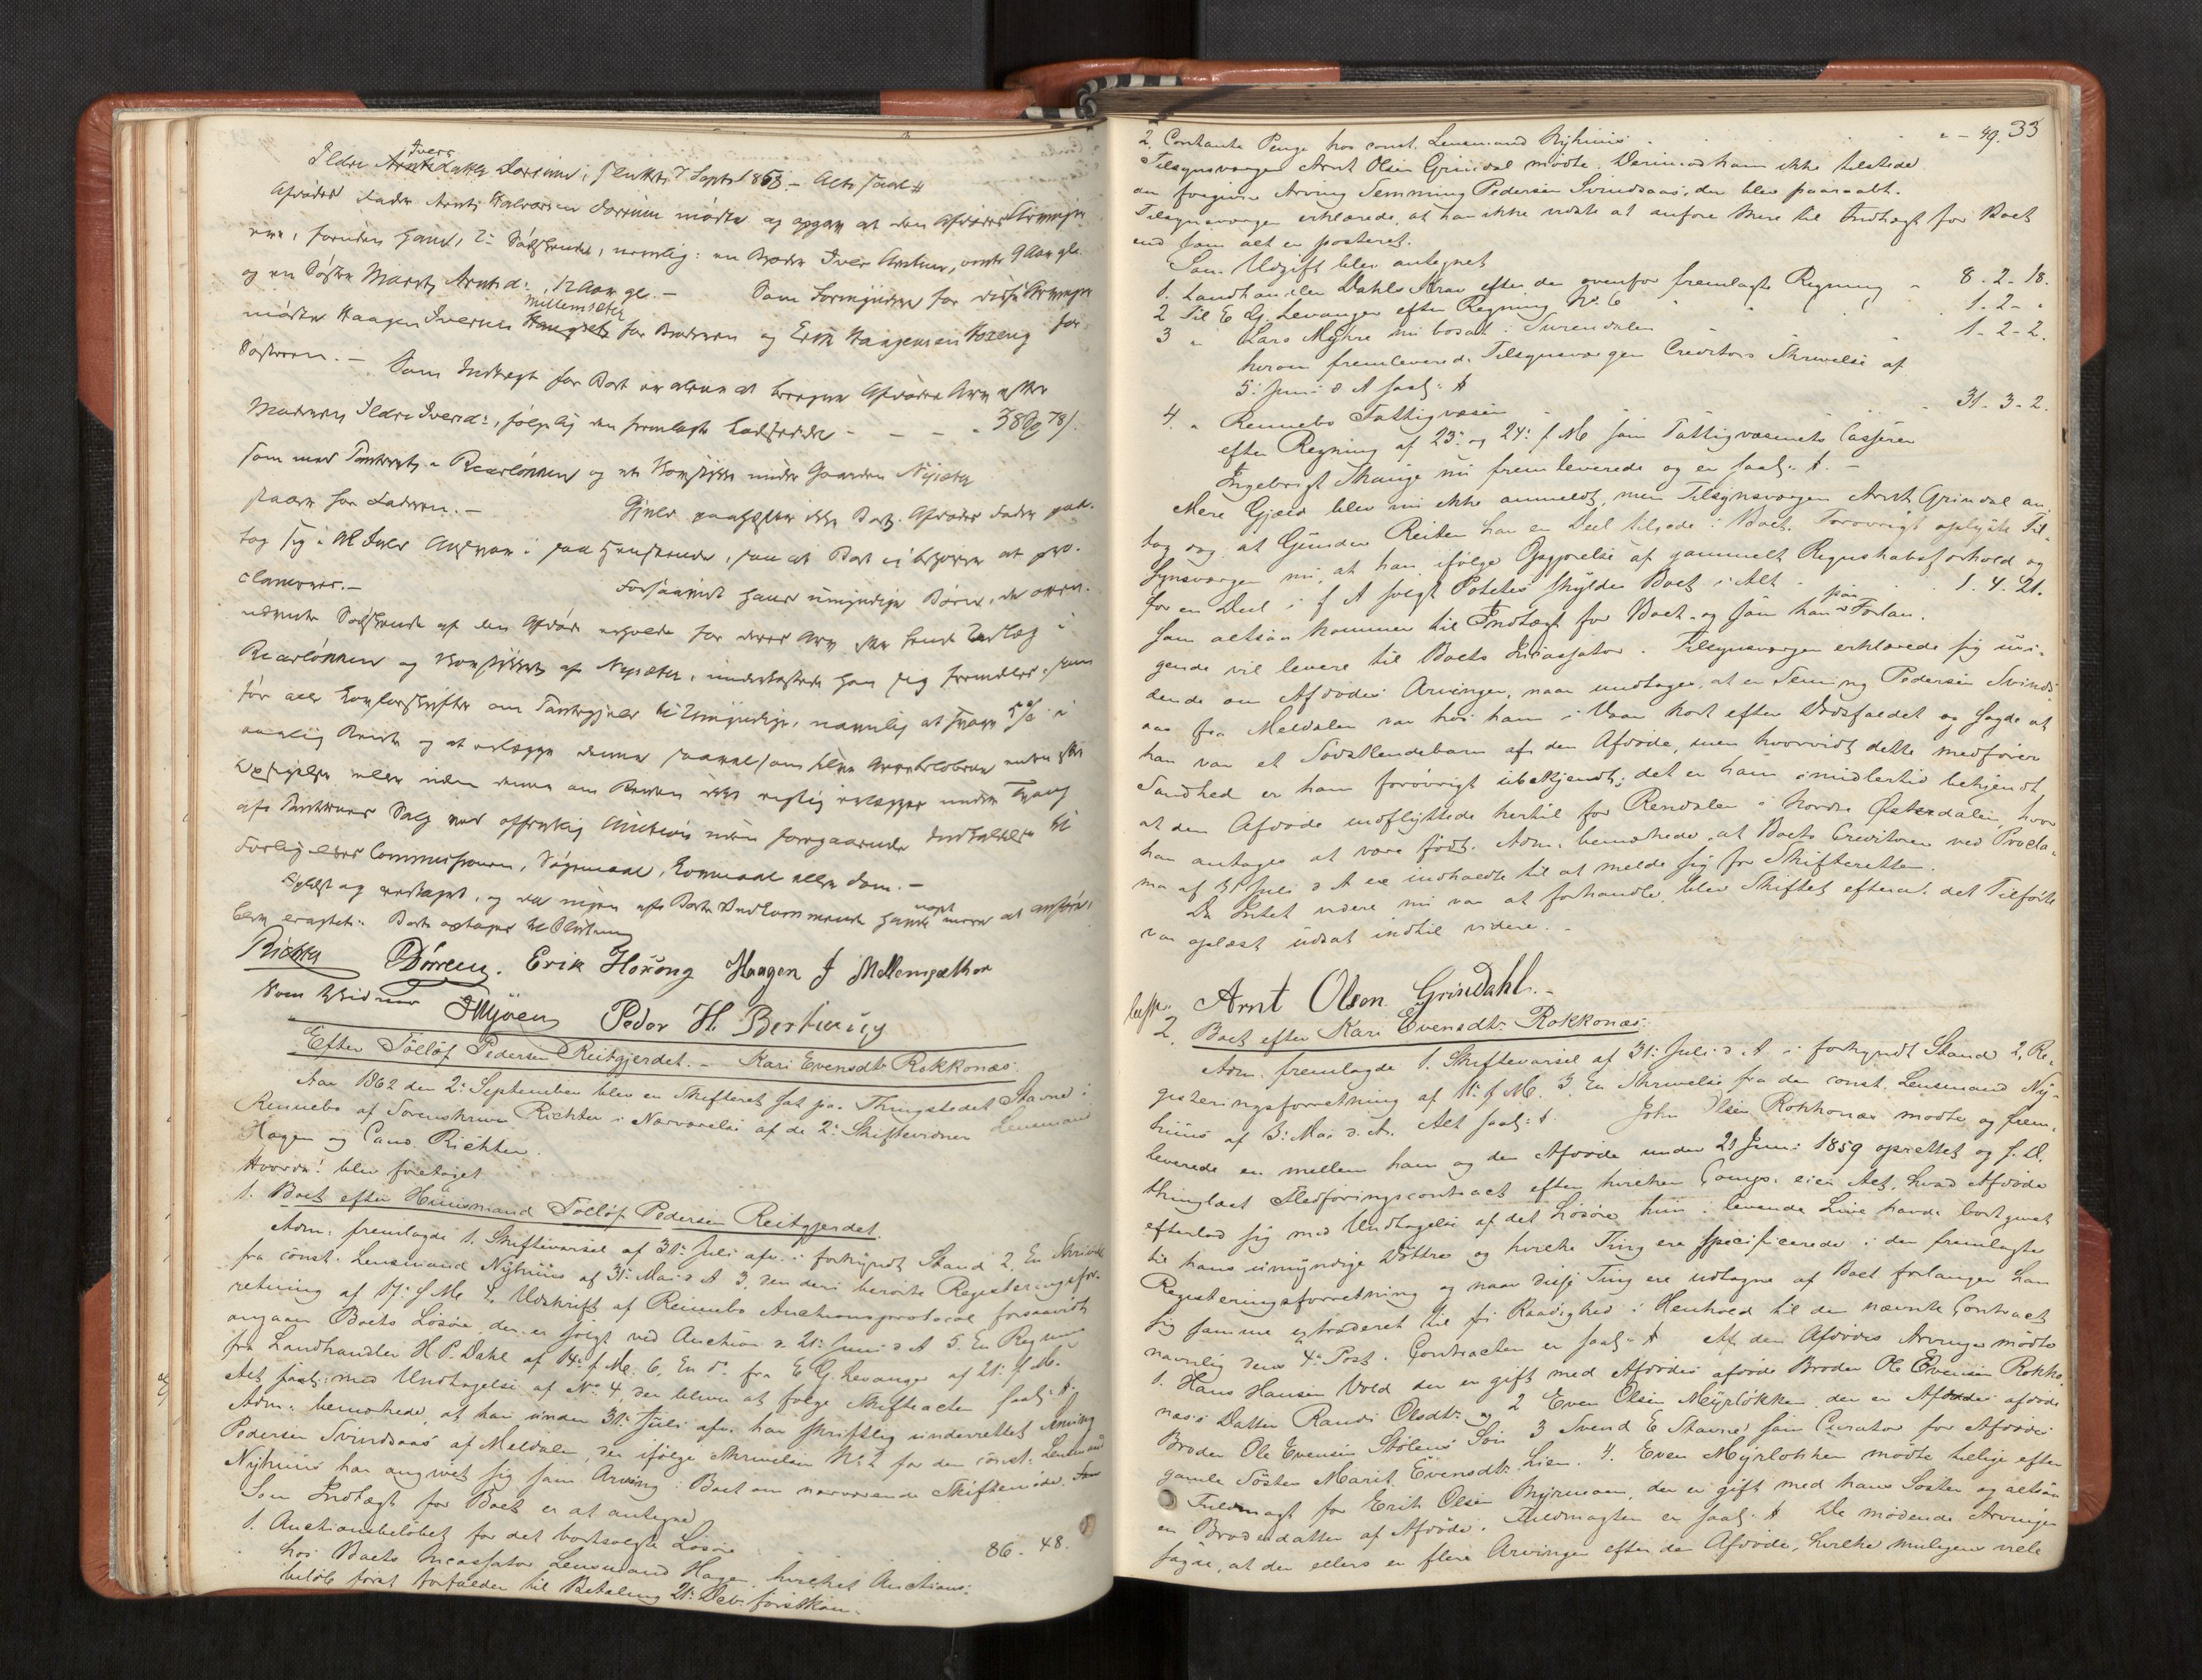 Ildri Iversdatter Dørrem i sluttet 7 Septr 1858 – Acts saal #
Afdødes Fader Arnt Halvorsen Dørrem mødte og opgav at den Afdødes Arvinger
ere, foruden ham, 2de Sødskende, nemlig: en Broder Iver Arntsen, omtr 9 Aar gl.
og en Søster Marit Arntsd:, 12 Aar gl. – Som Formynder for disse Arvinger
mødte Haagen Iversen Mellemsæter for Broderen og Erik Haagensen Hoseng for
Søsteren. – Som Indtægt for Boet er alene at beregne Afdødes Arv efter
Moderen Ildri Iversd:, følgelig den fremlagte Lodseddel - - - - 38 Sp 78 s.
som med Panteret i Rearlønnen og et Huusstykke under Gaarden Nysæter
staaer hos Faderen. – Gjeld paahæfter ikke Boet. Afdødes Fader paa-
tog sig i Alt Iver Ansvar i saa Henseende, saa at Boet ei behøver at pro-
clameres. – Forsaavidt hans umyndige Børn, de oven-
nævnte Sødskende af den Afdøde erholde for deres Arv ske sine Udlæg i
Rearlønnen og Huusstykket af Nysæter, underkastede han sig fremdeles, som
før alle Lovforskrifter om Pantegjeld til Umyndige, navnlig at svare 5 % i
aarlig Rente og at erlægge denne saavelsom selve Arvebeløbene enten efter
Opsigelse eller uden denne om Renten ikke rigtig erlægges under Tvang
afs Pantets Salg ved offentlig Auction uden foregaaende Indkaldelse til
Forligelses Commissionen, Søgsmaal, Lovmaal eller Dom. –
Oplæst og vedtaget, og da ingen af Boets Vedkommende havde noget mere at anføre,
blev eragtet: Boet optages til Slutning
Richter Dørrem. Erik Hosöng Haagen I Mellemsæther
Som Vidner Myøen Peder H. Bertning
Efter Tolløf Pedersen Reitgjerdet. – Kari Evensdtr Rokkonæs.
Aar 1862 den 2: September blev en Skifteret sat paa Thingstedet Stavne i
Rennebo af Sorenskriver Richter i Nærværelse af de 2: Skiftevidner Lensmand
Hagen og Cand. Richter.
Hvorda! blev foretaget
1. Boet efter Huusmand Tolløf Pedersen Reitgjerdet.
Adm: fremlagde 1. Skiftevarsel af 31: Juli afv. i forkyndt Stand 2. En Skrivelse
fra const. Lensmand Nyhuus af 31: Mai d A 3. den deri berørte Registeringsfor-
retning af 17: f. M. 4. Udskrift af Rennebo Auctionsprotocol forsaavidt
angaar Boets Løsøre, der er solgt ved Auction d. 21: Juni d A 5. En Regning
fra Landhandler H P. Dahl af 14: f. M. 6. En do fra E G. Levanger af 21: f. M.
Alt saal: med Undtagelse af No 4, der bliver at følge Skifteacten saal: #
Adm: bemærkede, at han under 31: Juli afv. har skriftlig underrettet Jenning
Pedersen Svindsaas af Meldalen, der ifølge Skrivelsen No 2 fra den const: Lensmand
Nyhuus har angivet sig som Arving i Boet om nærværende Skiftemøde. Som
Som Indtægt for Boet er at antegne
1. Auctionsbeløbet for det bortsolgte Løsøre 86. 48.
hos Boets Incassator Lensmand Hagen, hvilket Auctions-
beløb først forfalder til Betaling 21: Decbr førstkom.
33
2. Contante Penge hos const. Lensmand Nyhuus - " - 49.
Tilsynsværgen Arnt Olsen Grindal mødte. Derimod kom ikke tilstede
den foregivne Arving Jemming Pedersen Svindsaas, der blev paaraabt.
Tilsynsværgen erklærede, at han ikke vidste at anføre Mere til Indtægt for Boet
end som alt er posteret.
Som Udgift blev antegnet
1. Landhandler Dahls Krav efter den ovenfor fremlagte Regning " 8. 2. 18.
2 Til E. G. Levanger efter Regning No 6 " 1. 2 - "
3 " Lars Myhre nu bosat i Surendalen - - " 1. 2 - 2.
hvorom fremleverede Tilsynsværgen Creditors Skrivelse af
5: Juni d A saal: #
4. " Rennebo Fattigvæsen - - - " 31. 3. 2.
efter Regning af 23: og 24: f. M. som Fattigvæsenets Casserer
Ingebrigt Skauge nu fremleverede og er saal: #. –
Mere Gjæld blev nu ikke anmeldt, men Tilsynsværgen Arnt Grindal an-
tog dog, at Gunder Reiten har en Deel tilgode i Boet. Forøvrigt oplyste Til-
synsværgen nu, at han ifølge Opgjørelse af gammelt Regnskabsforhold og
for en Deel i f A solgt Potetes skylder Boet i Alt - - 1. 4. 21.
som altsaa kommer til Indtægt for Boet og som han paa Forlan-
gende vil levere til Boets Incassator. Tilsynsværgen erklærede sig uvi-
dende om Afdødes Arvinger, naar undtages, at en Jemming Pedersen Svinds-
aas fra Meldalen var hos ham i Vaar kort efter Dødsfaldet og sagde at
han var et Sødskendebarn af den Afdøde, men hvorvidt dette medfører
Sandhed er ham forøvrigt ubekjendt; det er ham imidlertid bekjendt,
at den Afdøde indflyttede hertil fra Rendalen i Nordre Østerdalen, hvor
han antages at være født. Adm: bemærkede, at Boets Creditorer ved Procla-
ma af 31 Juli d A ere indkaldte til at melde sig for Skifteretten.
Da Intet videre nu var at forhandle, blev Skiftet efterat det Tilførte
var oplæst udsat indtil videre. –
Arnt Olsen Grindahl. –
2. Boet efter Kari Evensdtr Rokkonæs.
Adm. fremlagde 1. Skiftevarsel af 31: Juli d. A i forkyndt Stand 2. Re-
gisteringsforretning af 11: f. M. 3. En Skrivelse fra den const. Lensmand Ny-
huus af 3: Mai d. A. Alt saal: #. John Olsen Rokkonæs mødte og frem-
leverede en mellem ham og den Afdøde under 21 Juni 1859 oprettet og s. D.
thinglæst Fledføringscontract efter hvilken Comps. eier Alt, hvad Afdøde
efterlod sig med Undtagelse af det Løsøre hun i levende Live havde bortgivet
til hans umyndige Døttre og hvilke Ting ere specificerede i den fremlagte
Registeringsforretning og naar disse Ting ere udtagne af Boet forlanger han
sig samme extraderet til fri Raadighed i Henhold til den nævnte Contract
navnlig dens 4: Post. Contracten er saal: # Af den Afdødes Arvinger mødte
1. Hans Hansen Vold der er gift med Afdødes afdøde Broder Ole Evensen Rokko-
næs's Datter Randi Olsdtr: og 2 Even Olsen Myrløkken, der er Afdødes afdøde
Broder Ole Evensen Stølens Søn 3 Svend E Stavne som Curator for Afdødes
gamle Søster Marit Evensdtr: Lien. 4. Even Myrløkken mødte tillige efter
Fuldmagt for Erik Olsen Myrmoen, der er gift med hans Søster og altsaa
en Broderdatter af Afdøde. Fuldmagten er saal: # De mødende Arvinger
sagde, at der ellers er flere Arvinger efter den Afdøde, hvilke muligens ville